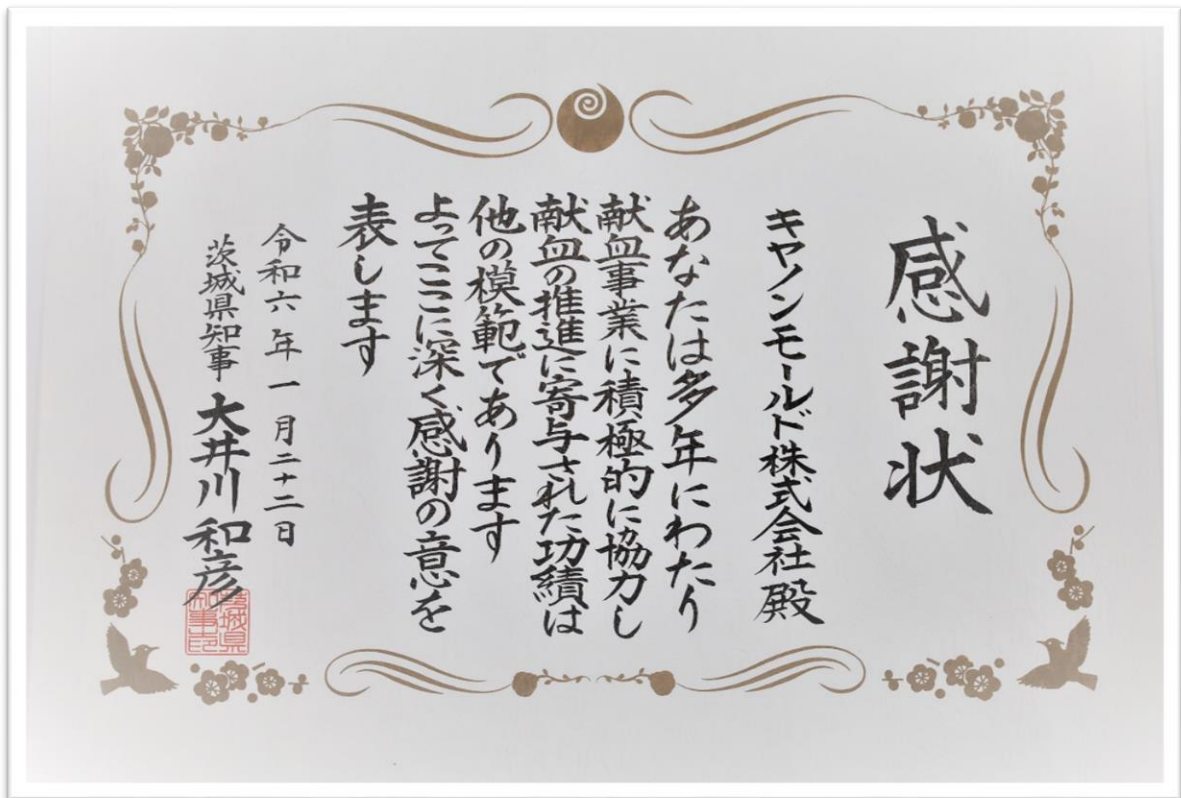 感謝状
キヤノンモールド株式会社殿
あなたは多年にわたり
献血事業に積極的に協力し
献血の推進に寄与された功績は
他の模範であります
よってここに深く感謝の意を
表します
令和六年一月二十二日
茨城県知事 大井川和彦
茨城県知事之印